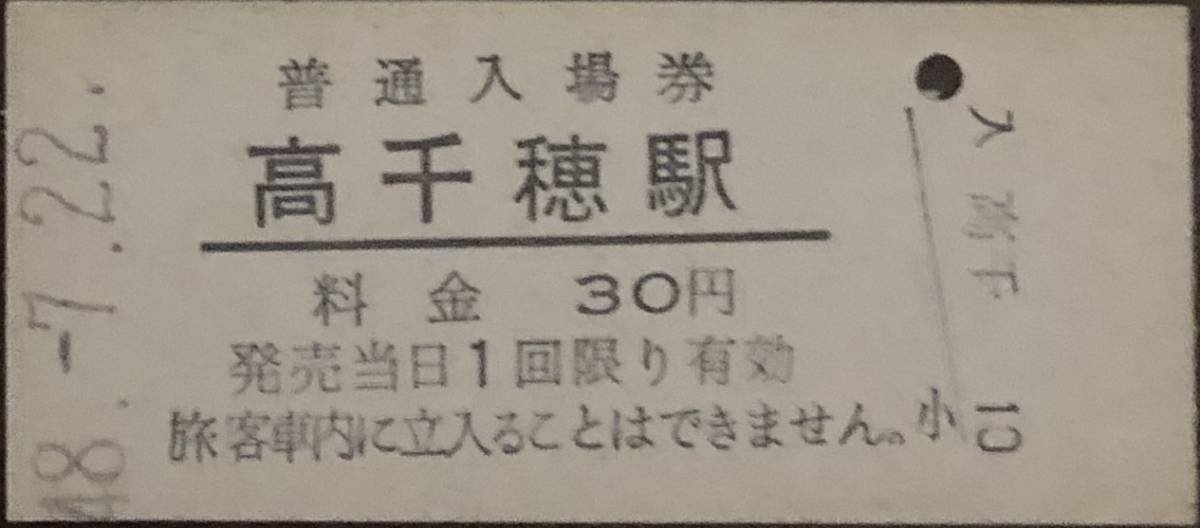 48.-7.22.
普通入場券
高千穂駅
料金 30円
発売当日1回限り有効
旅客車内に立入ることはできません。
小
入 高千
10